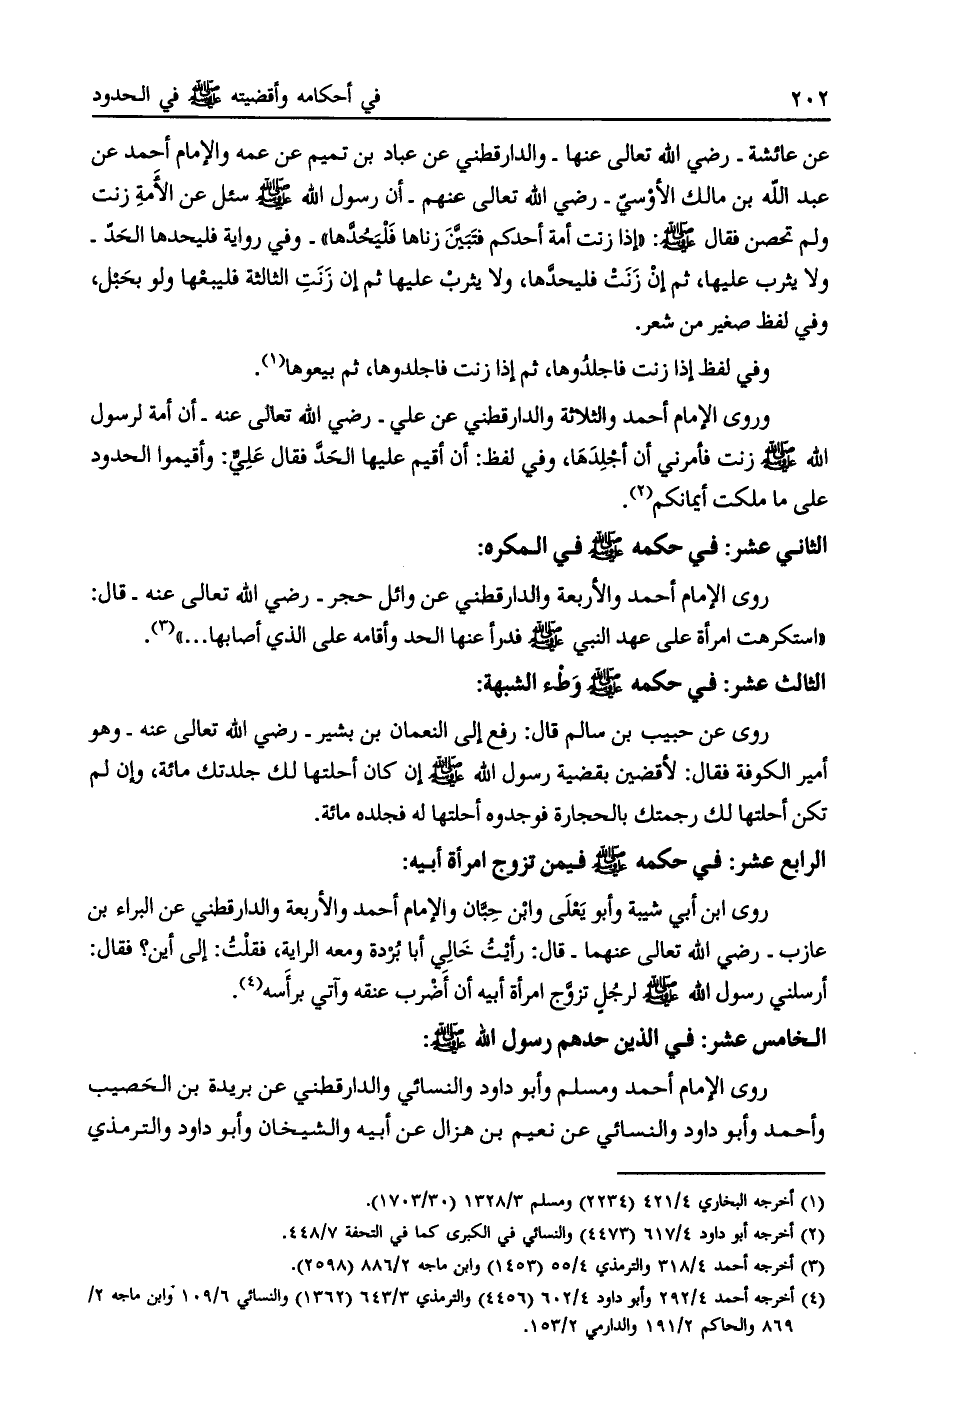 ٢٠٢ في أحكامه وأقضيته ﷺ في الحدود
عن عائشة ـ رضي الله تعالى عنها ـ والدارقطني عن عباد بن تميم عن عمه والإمام أحمد عن
عبد اللّه بن مالك الأوْسيّ ـ رضي الله تعالى عنهم ـ أن رسول الله ﷺ سئل عن الأَمةِ زنت
ولم تحصن فقال ﷺ: «إذا زنت أمة أحدكم فتَبَيَّنَ زناها فَلْيَحُدَّها» ـ وفي رواية فليحدها الحَدّ ـ
ولا يثرب عليها، ثم إنْ زَنَتْ فليحدَّها، ولا يثربْ عليها ثم إن زَنَتِ الثالثة فليبعْها ولو بحَبْل،
وفي لفظ صغير من شعر.
وفي لفظ إذا زنت فاجلدُوها، ثم إذا زنت فاجلدوها، ثم بيعوها(١).
وروى الإمام أحمد والثلاثة والدارقطني عن علي ـ رضي الله تعالى عنه ـ أن أمة لرسول
الله ﷺ زنت فأمرني أن أجْلِدَهَا، وفي لفظ: أن أقيم عليها الحَدَّ فقال عَلِيٌّ: وأقيموا الحدود
على ما ملكت أيمانكم(٢).
الثاني عشر: في حكمه ﷺ في المكره:
روى الإمام أحمد والأربعة والدارقطني عن وائل حجر ـ رضي الله تعالى عنه ـ قال:
«استكرهت امرأة على عهد النبي ﷺ فدرأ عنها الحد وأقامه على الذي أصابها...»(٣).
الثالث عشر: في حكمه ﷺ وَطْء الشبهة:
روى عن حبيب بن سالم قال: رفع إلى النعمان بن بشير ـ رضي الله تعالى عنه ـ وهو
أمير الكوفة فقال: لأقضين بقضية رسول الله ﷺ إن كان أحلتها لك جلدتك مائة، وإن لم
تكن أحلتها لك رجمتك بالحجارة فوجدوه أحلتها له فجلده مائة.
الرابع عشر: في حكمه ﷺ فيمن تزوج امرأة أبيه:
روى ابن أبي شيبة وأبو يَعْلَى وابْن حِبَّان والإمام أحمد والأربعة والدارقطني عن البراء بن
عازب ـ رضي الله تعالى عنهما ـ قال: رأيْتُ خَالِي أبا بُرْدة ومعه الراية، فقلْتُ: إلى أين؟ فقال:
أرسلني رسول الله ﷺ لرجُلٍ تزوَّج امرأة أبيه أن أَضْرب عنقه وآتي برأَسه(٤).
الخامس عشر: في الذين حدهم رسول الله ﷺ:
روى الإمام أحمد ومسلم وأبو داود والنسائي والدارقطني عن بريدة بن الحَصيب
وأحمد وأبو داود والنسائي عن نعيم بن هزال عن أبيه والشيخان وأبو داود والترمذي
(١) أخرجه البخاري ٤٢١/٤ (٢٢٣٤) ومسلم ١٣٢٨/٣ (١٧٠٣/٣٠).
(٢) أخرجه أبو داود ٦١٧/٤ (٤٤٧٣) والنسائي في الكبرى كما في التحفة ٤٤٨/٧.
(٣) أخرجه أحمد ٣١٨/٤ والترمذي ٥٥/٤ (١٤٥٣) وابن ماجه ٨٨٦/٢ (٢٥٩٨).
(٤) أخرجه أحمد ٢٩٢/٤ وأبو داود ٦٠٢/٤ (٤٤٥٦) والترمذي ٦٤٣/٣ (١٣٦٢) والنسائي ١٠٩/٦ وابن ماجه ٢/
٨٦٩ والحاكم ١٩١/٢ والدارمي ١٥٣/٢.